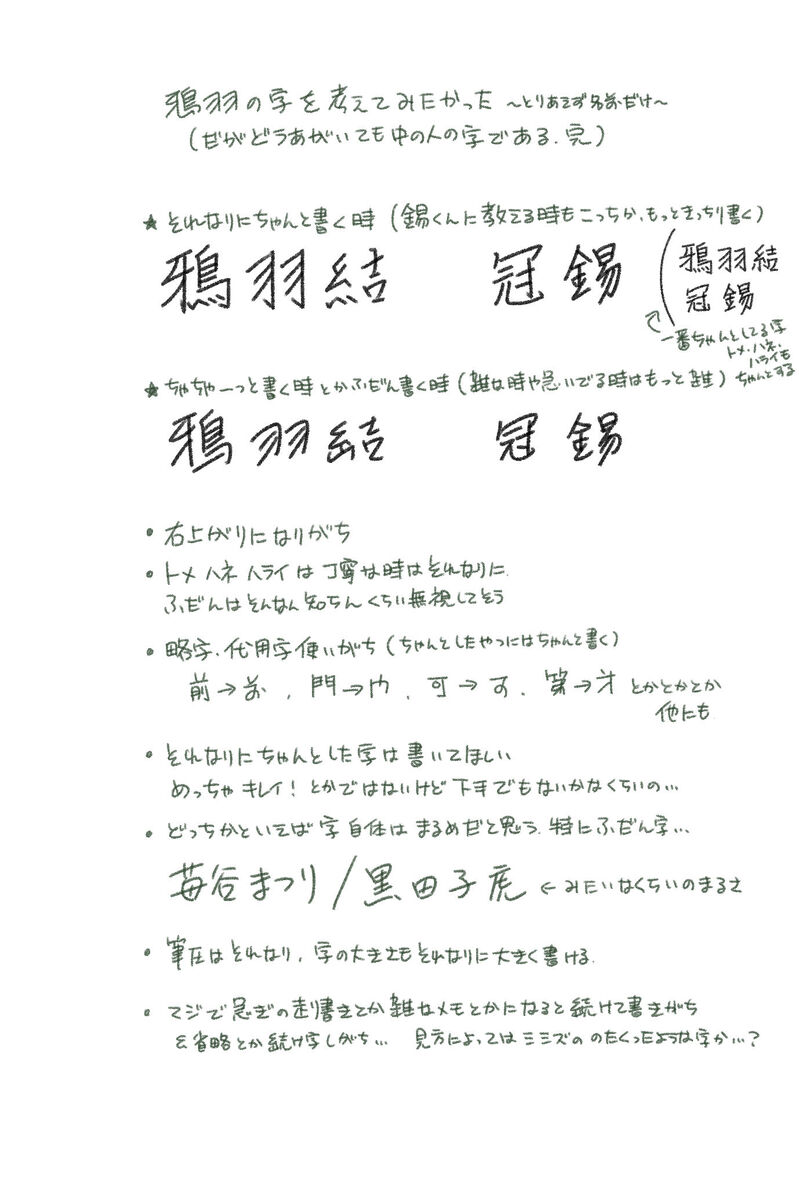 鴉羽の字を考えてみたかった ～とりあえず名前だけ～
(だがどうあがいても中の人の字である.完)
★ それなりにちゃんと書く時 (錫くんに教える時もこっちか、もっときっちり書く)
鴉羽結 冠錫
(鴉羽結
冠錫
一番ちゃんとしてる字
トメ・ハネ・
ハライも
ちゃんとする
★ ちゃちゃーっと書く時とかふだん書く時 (雑な時や急いでる時はもっと雑)
鴉羽結 冠錫
• 右上がりになりがち
• トメ ハネ ハライは丁寧な時はそれなりに.
ふだんはそんなん知らんくらい無視してそう
• 略字.代用字使いがち (ちゃんとしたやつにはちゃんと書く)
前→歬, 門→门, 可→す, 第→才 とかとかとか
他にも
• それなりにちゃんとした字は書いてほしい
めっちゃキレイ! とかではないけど下手でもないかなくらいの…
• どっちかといえば字自体はまるめだと思う.特にふだん字…
苺谷まつり/黒田子虎 ← みたいなくらいのまるさ
• 筆圧はそれなり, 字の大きさもそれなりに大きく書ける.
• マジで急ぎの走り書きとか雑なメモとかになると続けて書きがち
&省略とか続け字しがち… 見方によってはミミズののたくったような字か…?